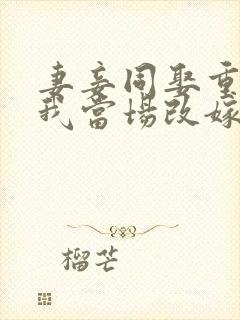 妻妾同娶重
我當場改嫁
榴芒